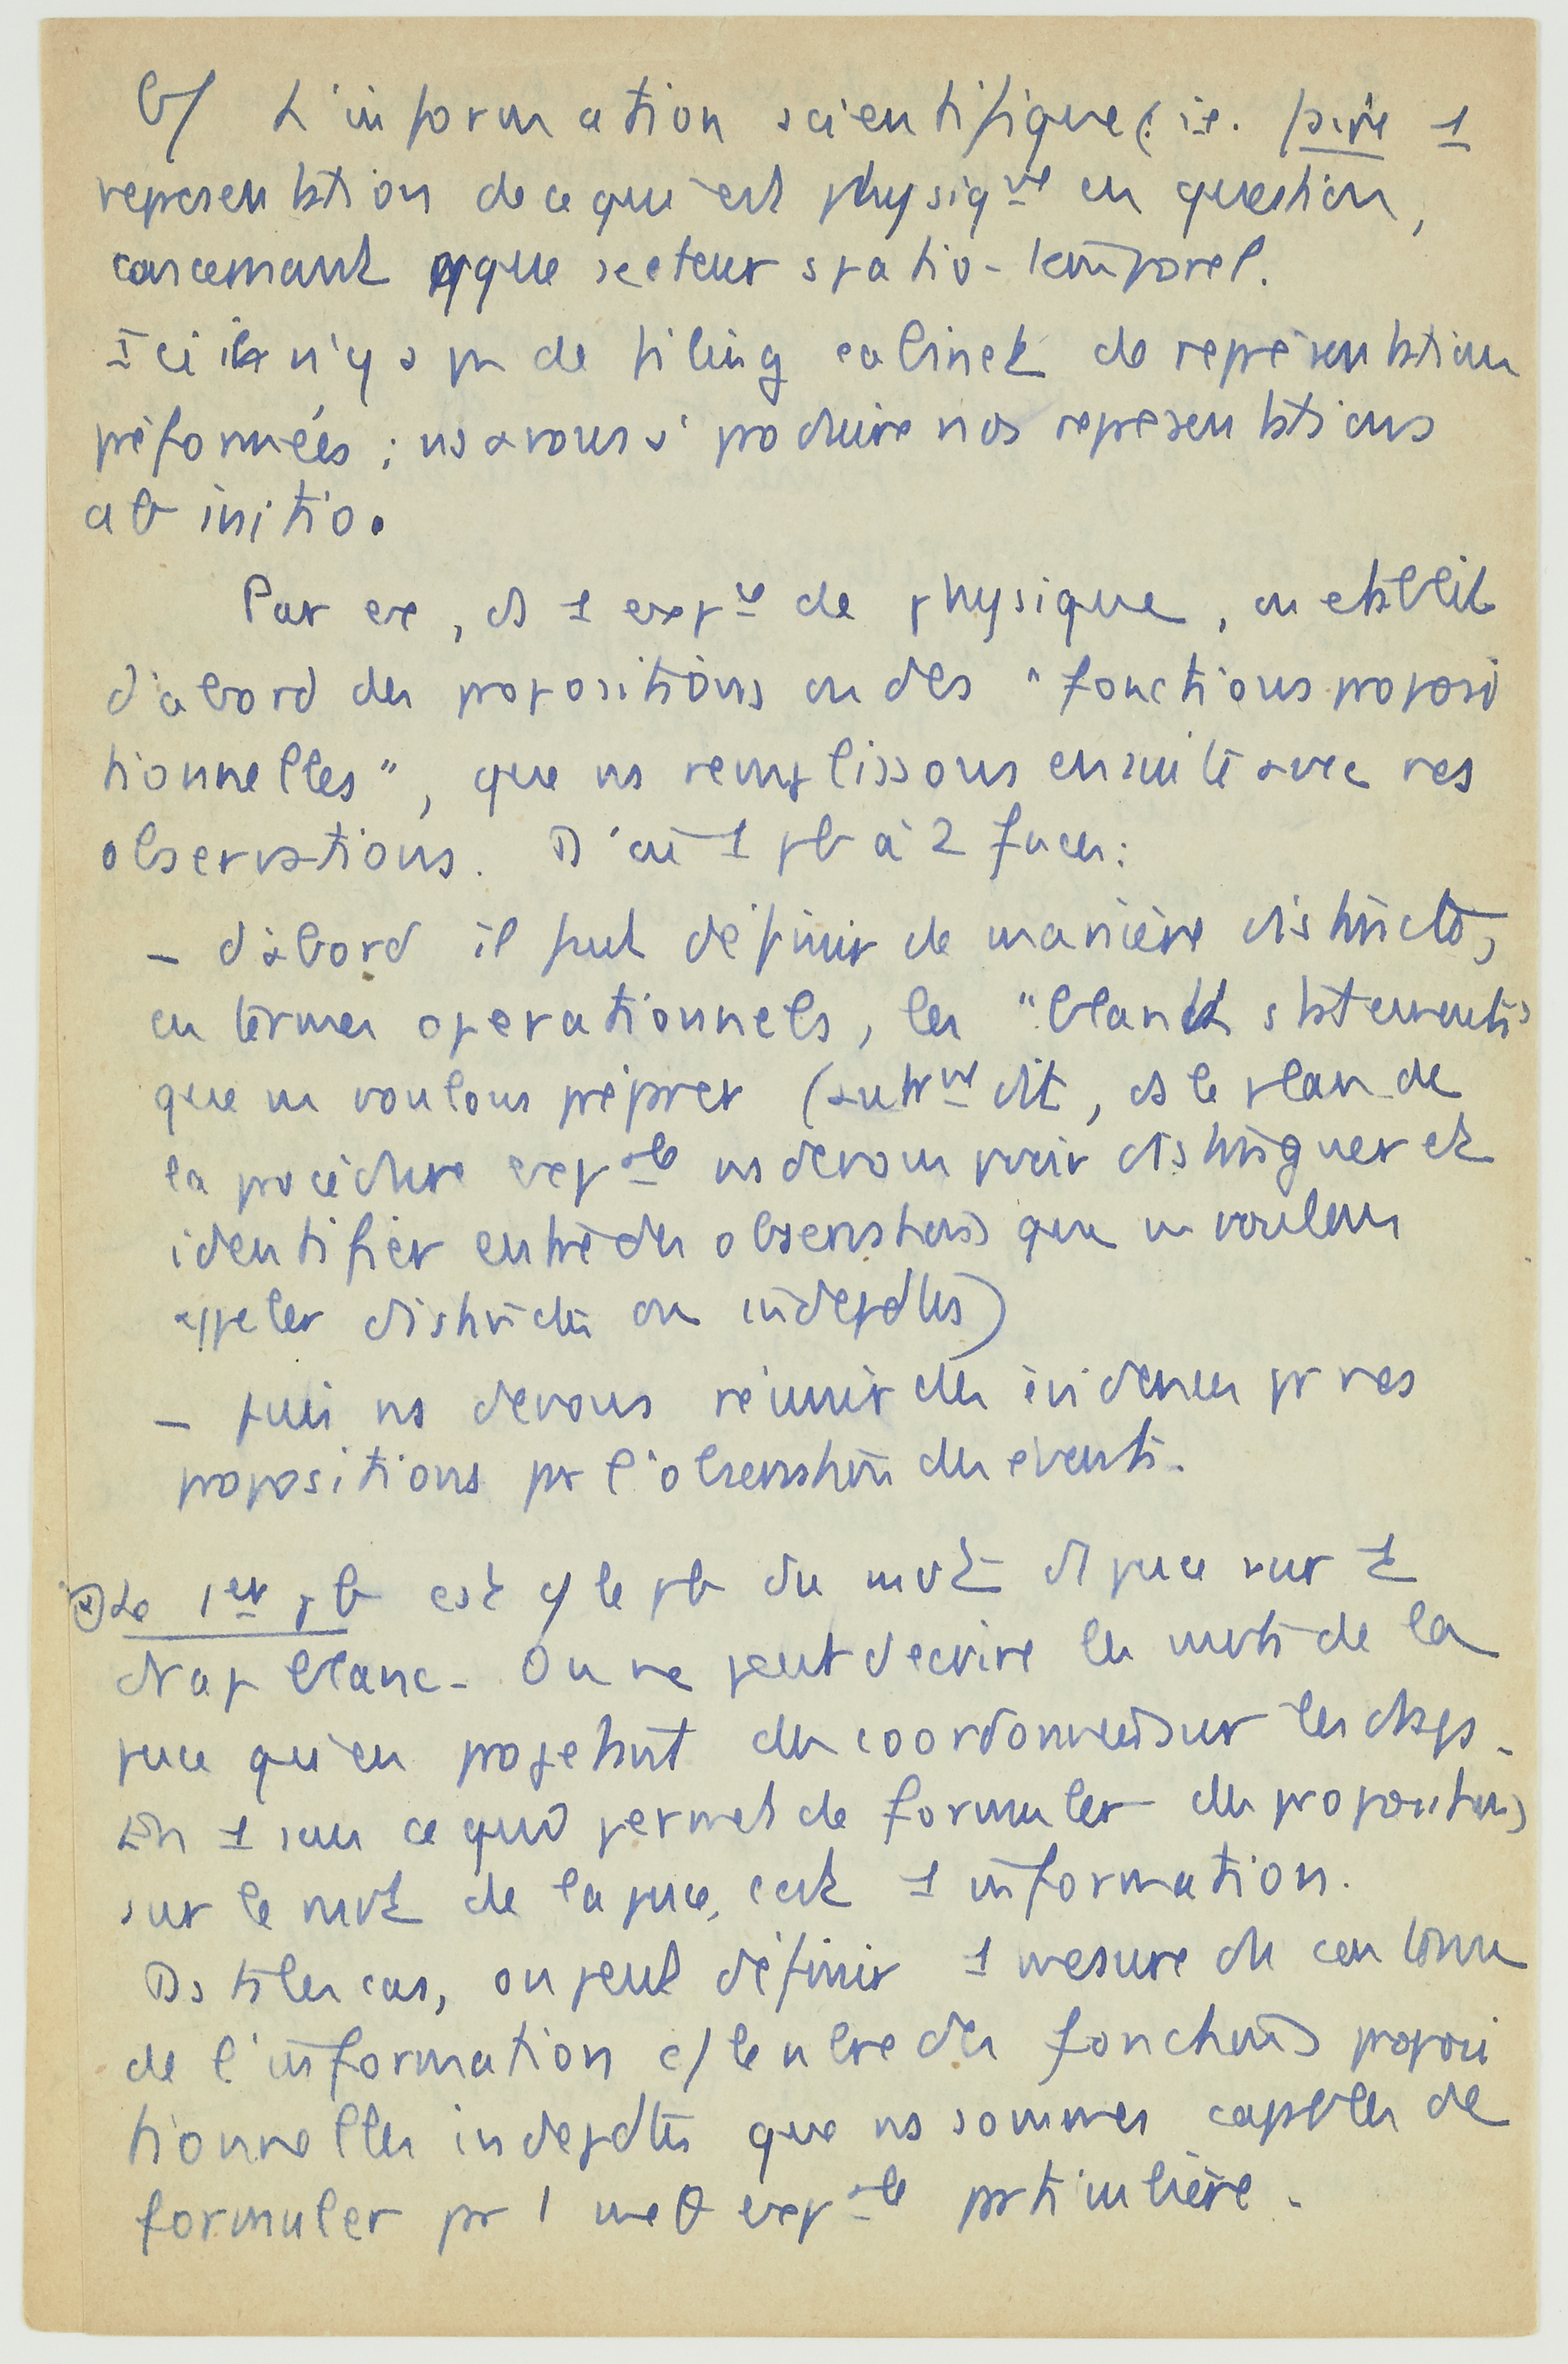 b/ L'information scientifique (: ie. faire 1
representation de ce qui est physiqᵘᵉ en question,
concernant qque secteur spatio-temporel.
Ici il n'y a pas de filing cabinet de représentation
préformées ; ns avons à produire nos representations
ab initio.
Par ex, ds 1 expᶜᵉ de physique, on établit
d'abord des propositions ou des "fonctions proposi
tionnelles", que ns remplissons ensuite avec nos
observations. D'où 1 pb à 2 faces :
– d'abord il faut définir de manière distincte,
en termes operationnels, les "blank statements
que ns voulons préparer (autrᵗ dit, ds le plan de
la procédure expᵃˡᵉ ns devons pvoir distinguer et
identifier entre des observations que ns voulons
appeler distinctes ou indepdtes)
– puis ns devons réunir des évidences pr nos
propositions par l'observation des events.
Le 1ᵉʳ pb est c/ le pb du mvt d'1 puce sur 1
drap blanc. On ne peut decrire les mvts de la
puce qu'en projetant des coordonnées sur les draps.
En 1 sens ce qui permet de formuler des propositions
sur le mvt de la puce, c'est 1 information.
Ds tˢ les cas, on peut définir 1 mesure du contenu
de l'information c/ le nbre des fonctions proposi
tionnelles indepdtes que ns sommes capables de
formuler pr 1 metθ expᵃˡᵉ particulière.